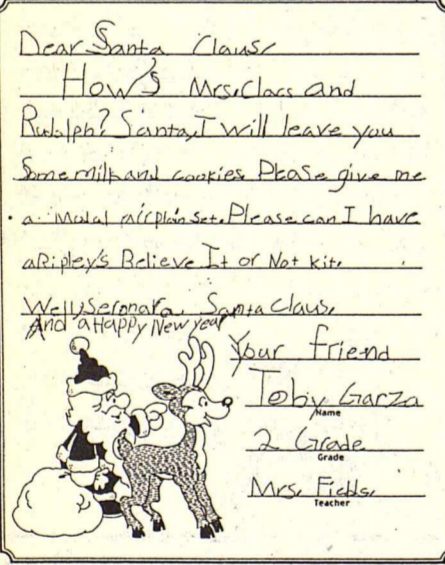 Dear Santa Claus,
How's Mrs. Claus and
Rudalph? Santa, I will leave you
Some milk and cookies. Please give me
a Modal airplain set. Please can I have
a Ripley's Believe It or Not kit.
Well, Seronara, Santa Claus,
And a Happy New year
Your friend
Toby Garza
Name
2 Grade
Grade
Mrs. Fields,
Teacher